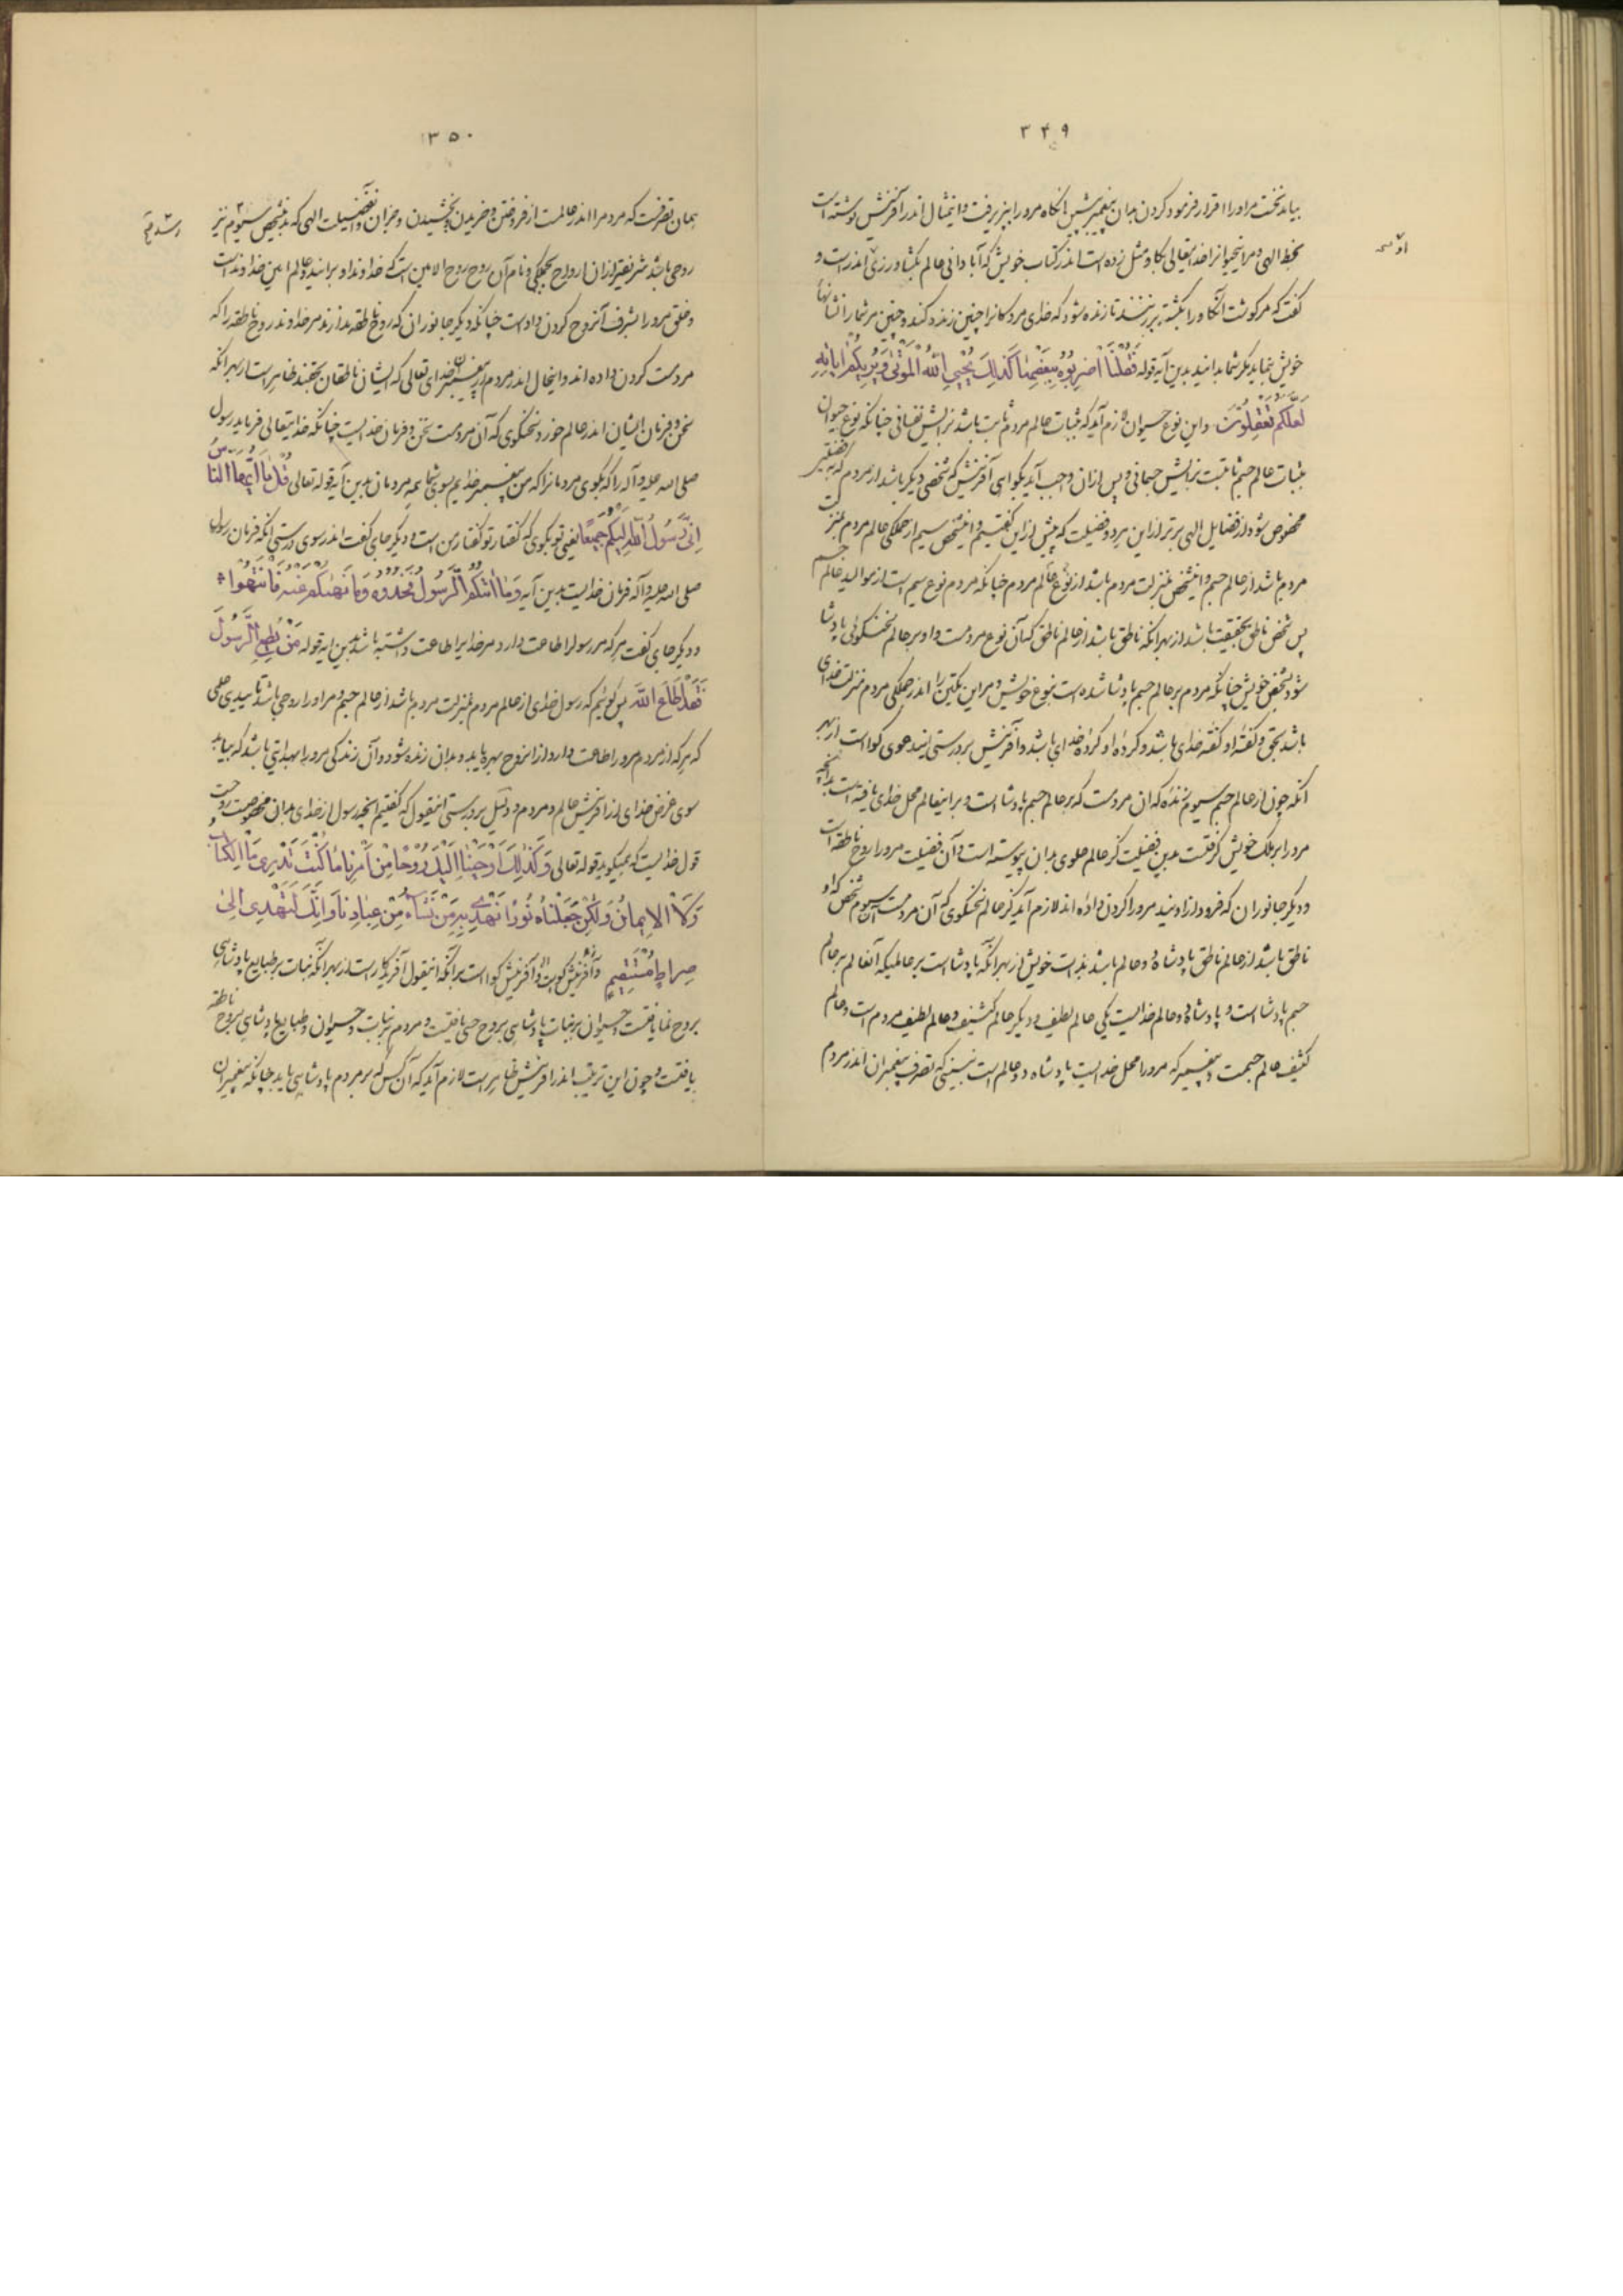 ۳۴۹
بیاید نخست مر او را اقرار فرمود کردن بدان پیغمبر پیشین آنگاه مرو را بپذیرفت و اینمثال اندر آفرینش نوشته است
بخط الهی و مر اینحیوانرا خدایتعالی بگاو مثل زده است اندر کتاب خویش که آبادانی عالم بکشاورزی اندر است و
گفت که مر گوشت آن گاو را بکشته بر زنند تا زنده شود که خدای مردگانرا چنین زنده کند و چنین مر شما را نشانیها
خویش بنماید مگر شما بدانید بدین آیه قوله فَقُلْنَا اضْرِبُوهُ بِبَعْضِهَا كَذٰلِكَ يُحْيِي اللهُ الْمَوْتٰى وَيُرِيكُمْ اٰيَاتِهِ
لَعَلَّكُمْ تَعْقِلُونَ و این نوع حیوان لازم آید که بثبات عالم مردم ثابت باشد بزایش نفسانی چنانکه نوع حیوان
بثبات عالم جسم ثابتست بزایش جسمانی و پس ازان واجب آید بگواهی آفرینش که شخصی دیگر باشد از مردم که بفضلتی
مخصوص شود از فضایل الهی برتر از این هر دو فضیلت که پیش ازاین گفتیم و اینشخص سیم از جملگی عالم مردم بمنزلت
مردم باشد از عالم جسم و اینشخص بمنزلت مردم باشد از نوع عالم مردم چنانکه مردم نوع سیم است از موالید عالم جسم
پس شخص ناطق بحقیقت باشد از بهر آنکه ناطق باشد از عالم ناطق که آن نوع مردمست و او بر عالم سخنگوی پادشا
شود بشخص خویش چنانکه مردم بر عالم جسم پادشا شده است بنوع خویش و مر این یکتن را اندر جملگی مردم منزلت خدای
باشد بحق و گفته او گفته خدای باشد و کرده او کرده خدای باشد و آفرینش بر درستی اینمدعوی گواست از بهر
آنکه چون از عالم جسم سیوم زنده که ان مردمست که بر عالم جسم پادشا است و بر اینعالم محل خدای یافته است بدانچه
مرو را بر ملک خویش گرفتست بدین فضیلت کز عالم علوی بدان پیوسته است و آن فضیلت مرو را روح ناطقه است
و دیگر جانوران که فرود ازاویند مرو را گردن داده اند لازم آید کز عالم سخنگوی که آن مردمست سیوم شخص که او
ناطق باشد از عالم ناطق پادشاه دو عالم باشد بذات خویش از بهر آنکه پادشا است بر عالمیکه آنعالم بر عالم
جسم پادشا است و پادشاه دو عالم خدایست یکی عالم لطیف و دیگر عالم کثیف و عالم لطیف مردم است و عالم
کثیف عالم جسمست و پیغمبر که مرو را محل خدایست پادشاه دو عالم است نبینی که تصرف پیغمبران اندر مردم
۳۵۰
همان تصرفست که مردم را اندر عالمست از فروختن و خریدن و بخشیدن و جز آن و آن فضیلت الهی که بدین شخص سیوم نیز
روحی باشد شریفتر ازان ارواح بجملگی و نام آن روح روح الامین است که خداوند او بر اسید و عالم امین خداوند است
و خلق مرو را بشرف آنروح گردن داداست چنانکه دیگر جانوران که روح ناطقه ندارند مر خداوند روح ناطقه را که
مردمست گردن داده اند و اینحال اندر مردم از پیغمبران خدای تعالی که ایشان ناطقان بحقند ظاهر است از بهر آنکه
سخن و فرمان ایشان اندر عالم خرد و سخنگوی که آن مردمست سخن و فرمان خدایست چنانکه خدایتعالی فرماید رسول
صلی الله علیه و آله را که بگوی مردمانرا که من پیغمبر خدایم سوی شما همه مردمان بدین آیه قوله تعالی قُلْ يَا اَيُّهَا النَّاسُ
اِنِّي رَسُولُ اللهِ اِلَيْكُمْ جَمِيعًا یعنی تو بگوی که گفتار تو گفتار من است و دیگر جای گفت اندر سوی درستی آنکه فرمان رسول
صلی الله علیه و آله فرمان خدایست بدین آیه وَمَا اٰتٰيكُمُ الرَّسُولُ فَخُذُوهُ وَمَا نَهٰيكُمْ عَنْهُ فَانْتَهُوا
و دیگر جای گفت هر که مر رسولرا طاعت دارد مر خدایرا طاعت داشته باشد بدین آیه قوله مَنْ يُطِعِ الرَّسُولَ
فَقَدْ اَطَاعَ اللهَ پس گوئیم که رسول خدای از عالم مردم بمنزلت مردم باشد از عالم جسم و مر او را روحی باشد تاییدی علمی
که هر که از مردم مرو را طاعت دارد از انروح بهره یابد و بدان زنده شود و آن زندگی مرو را بهدایتی باشد که بیابد
سوی غرض خدای از آفرینش عالم و مردم و دلیل بر درستی اینقول که گفتیم آنچه رسول از خدای بدان مخصوصست روحست
قول خدایست که میگوید قوله تعالی وَكَذٰلِكَ اَوْحَيْنَا اِلَيْكَ رُوحًا مِنْ اَمْرِنَا مَا كُنْتَ تَدْرِي مَا الْكِتَابُ
وَلَا الْاِيمَانُ وَلٰكِنْ جَعَلْنَاهُ نُورًا نَهْدِي بِهِ مَنْ نَشَاءُ مِنْ عِبَادِنَا وَاِنَّكَ لَتَهْدِي اِلٰى
صِرَاطٍ مُسْتَقِيمٍ و آفرینش گواست برانکه اینقول آفریدگار است از بهر آنکه نبات بر طبایع پادشاهی
بروح نما یافتست و حیوان بر نبات پادشاهی بروح حسی یافتست و مردم بر نبات و حیوان و طبایع پادشاهی بروح ناطقه
یافتست و چون این ترتیب اندر آفرینش ظاهر است لازم آید که آن کس که بر مردم پادشاهی یابد چنانکه پیغمبران